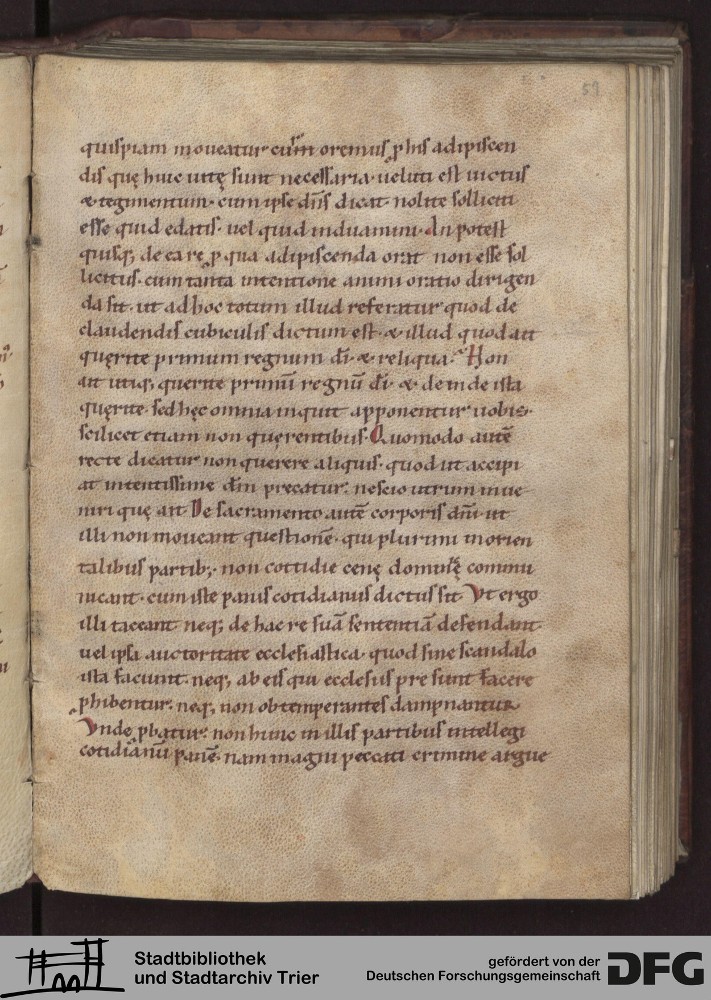 59
quispiam moueatur cum oremus p his adipiscen
dis quę huic uitę sunt necessaria. ueluti est uictus
& tegimentum. cum ipse dn̄s dicat. nolite solliciti
esse quid edatis. uel quid induamini. An potest
quisq; de ea re p qua adipiscenda orat non esse sol
licitus. cum tanta intentione animi oratio dirigen
da sit. ut ad hoc totum illud referatur quod de
claudendis cubiculis dictum est. & illud quod ait
quęrite primum regnum dī. & reliqua. Non
ait utiq; querite primū regnū dī. & deinde ista
quęrite. sed hęc omnia inquit apponentur uobis.
scilicet etiam non quęrentibus. Quomodo autē
recte dicatur non querere aliquis. quod ut accipi
at intentissime dm̄ precatur. nescio utrum inue
niri que ait De sacramento autē corporis dnī. ut
illi non moueant questionē. qui plurimi in orien
talibus partib; non cottidie cenę domini commu
nicant. cum iste panis cotidianus dictus sit Vt ergo
illi taceant neq; de hac re suā sententiā defendant
uel ipsa auctoritate ecclesiastica. quod sine scandalo
ista faciunt. neq; ab eis qui ecclesiis pre sunt facere
phibentur. neq; non obtemperantes dampnantur
Vnde pbatur. non hunc in illis partibus intellegi
cotidianū panē. nam magni peccati crimine argue
Stadtbibliothek
und Stadtarchiv Trier
gefördert von der
Deutschen Forschungsgemeinschaft
DFG